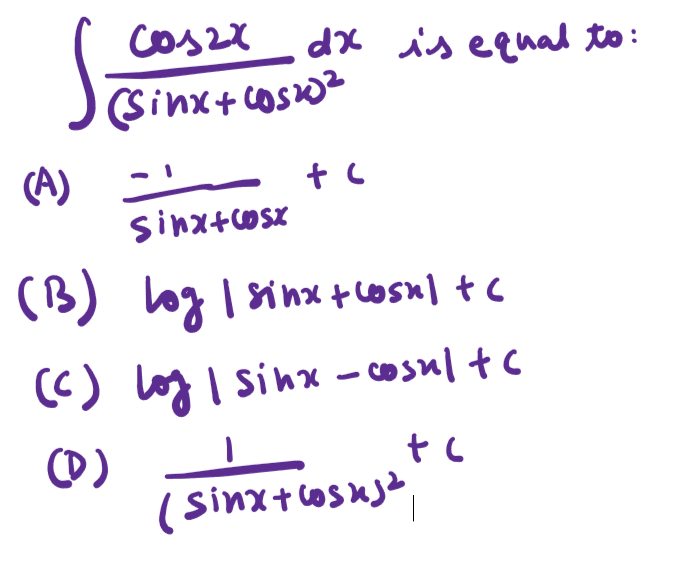 ∫ cos2x / (sinx + cosx)² dx is equal to:
(A) -1 / sinx+cosx + c
(B) log | sinx + cosx | + c
(C) log | sinx - cosx | + c
(D) 1 / (sinx + cosx)² + c